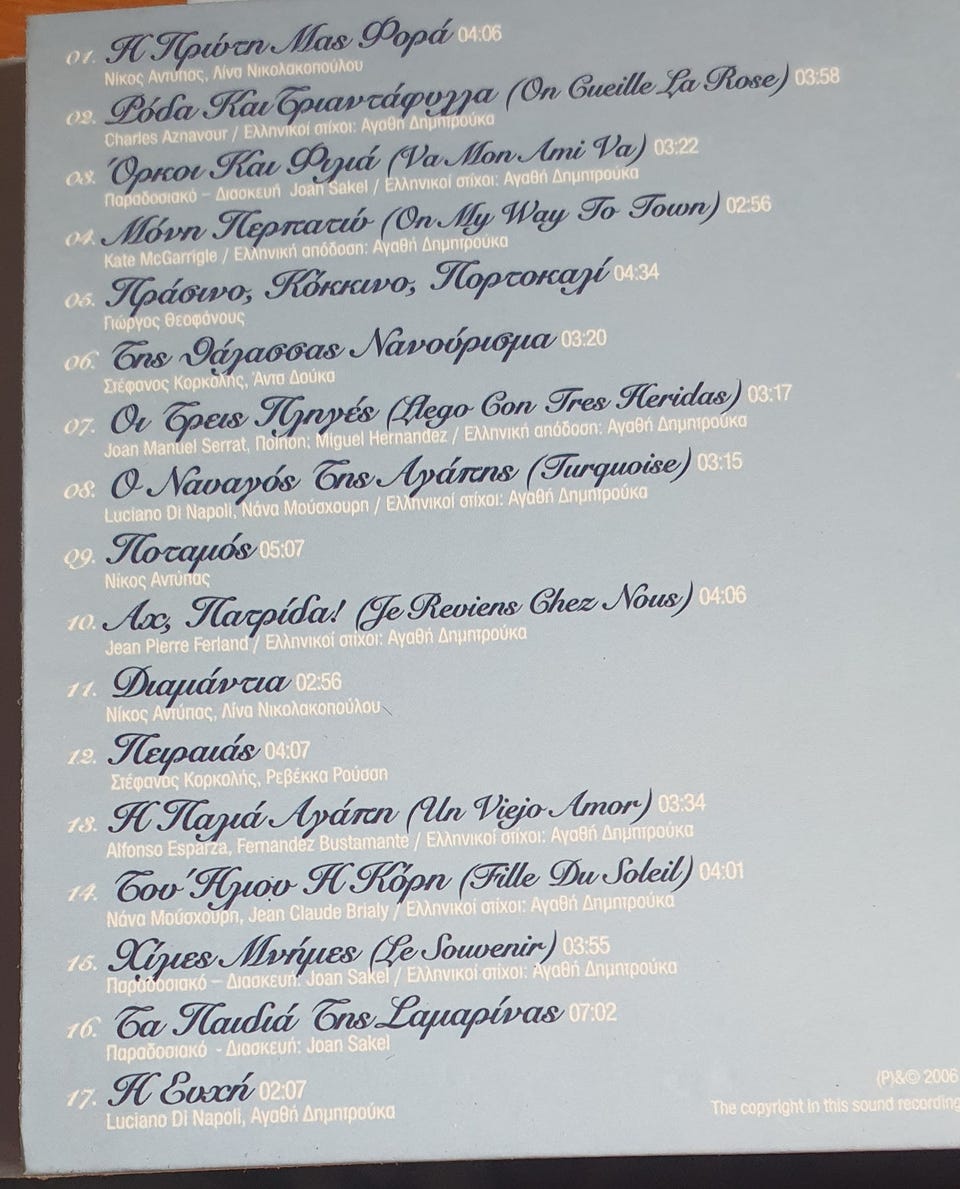 01. Η Πρώτη Μας Φορά 04:06
Νίκος Αντύπας, Λίνα Νικολακοπούλου
02. Ρόδα Και Τριαντάφυλλα (On Cueille La Rose) 03:58
Charles Aznavour / Ελληνικοί στίχοι: Αγαθή Δημητρούκα
03. Όρκοι Και Φιλιά (Va Mon Ami Va) 03:22
Παραδοσιακό – Διασκευή Joan Sakel / Ελληνικοί στίχοι: Αγαθή Δημητρούκα
04. Μόνη Περπατώ (On My Way To Town) 02:56
Kate McGarrigle / Ελληνική απόδοση: Αγαθή Δημητρούκα
05. Πράσινο, Κόκκινο, Πορτοκαλί 04:34
Γιώργος Θεοφάνους
06. Της Θάλασσας Νανούρισμα 03:20
Στέφανος Κορκολής, Άντα Δούκα
07. Οι Τρεις Πληγές (Llego Con Tres Heridas) 03:17
Joan Manuel Serrat, Ποίηση: Miguel Hernandez / Ελληνική απόδοση: Αγαθή Δημητρούκα
08. Ο Ναυαγός Της Αγάπης (Turquoise) 03:15
Luciano Di Napoli, Νάνα Μούσχουρη / Ελληνικοί στίχοι: Αγαθή Δημητρούκα
09. Ποταμός 05:07
Νίκος Αντύπας
10. Αχ, Πατρίδα! (Je Reviens Chez Nous) 04:06
Jean Pierre Ferland / Ελληνικοί στίχοι: Αγαθή Δημητρούκα
11. Διαμάντια 02:56
Νίκος Αντύπας, Λίνα Νικολακοπούλου
12. Πειραιάς 04:07
Στέφανος Κορκολής, Ρεβέκκα Ρούσση
13. Η Παλιά Αγάπη (Un Viejo Amor) 03:34
Alfonso Esparza, Fernandez Bustamante / Ελληνικοί στίχοι: Αγαθή Δημητρούκα
14. Του Ήλιου Η Κόρη (Fille Du Soleil) 04:01
Νάνα Μούσχουρη, Jean Claude Brialy / Ελληνικοί στίχοι: Αγαθή Δημητρούκα
15. Χίλιες Μνήμες (Le Souvenir) 03:55
Παραδοσιακό – Διασκευή: Joan Sakel / Ελληνικοί στίχοι: Αγαθή Δημητρούκα
16. Τα Παιδιά Της Σαμαρίνας 07:02
Παραδοσιακό - Διασκευή: Joan Sakel
17. Η Ευχή 02:07
Luciano Di Napoli, Αγαθή Δημητρούκα
(P)&© 2006
The copyright in this sound recording